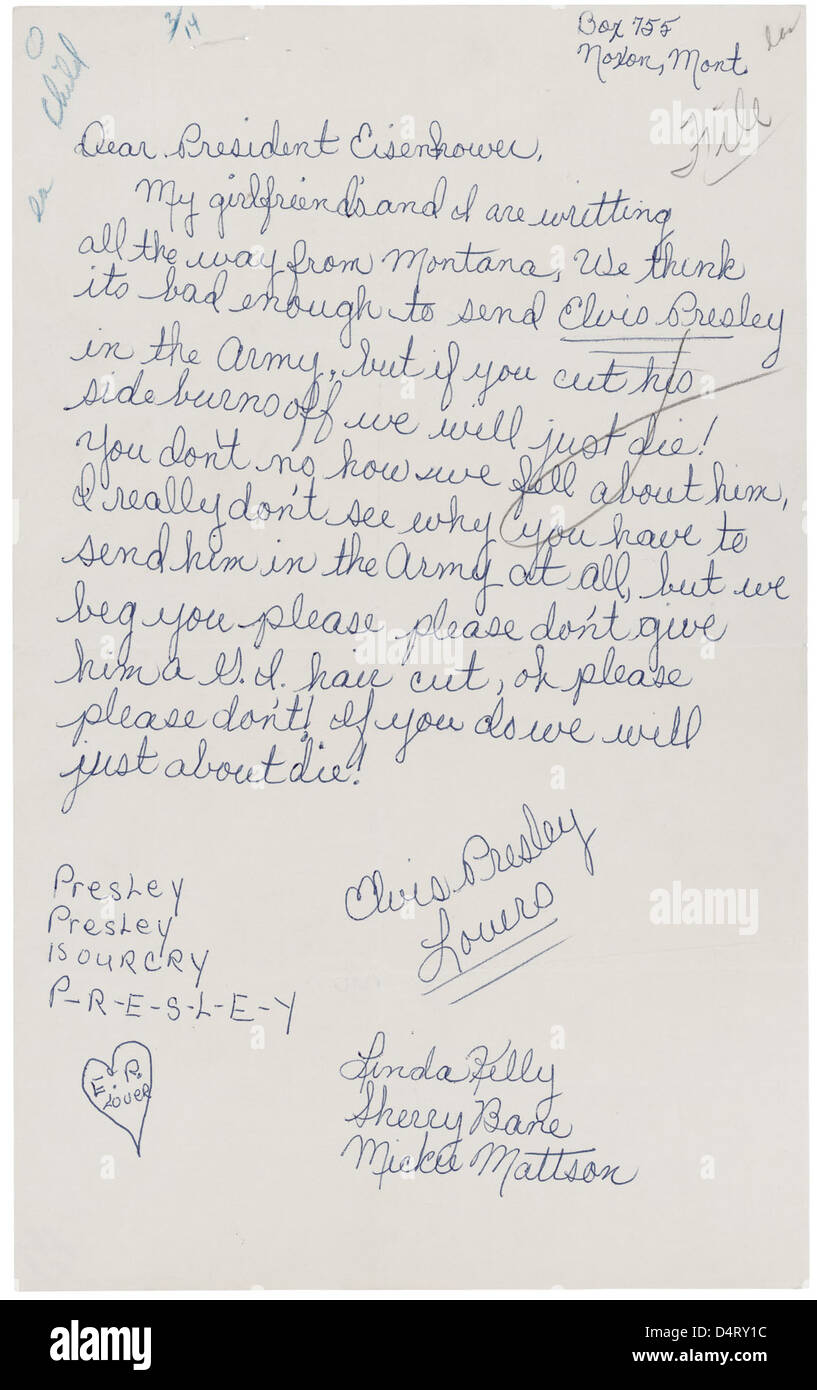 3/14
Child
Box 755
Noxon, Mont.
File
Dear President Eisenhower,
My girlfriend's and I are writting
all the way from Montana, We think
its bad enough to send Elvis Presley
in the Army, but if you cut his
side burns off we will just die!
You don't no how we fell about him,
I really don't see why you have to
send him in the Army at all, but we
beg you please please don't give
him a G.I. hair cut, oh please
please don't! If you do we will
just about die!
Elvis Presley
Lovers
Presley
Presley
IS OUR CRY
P-R-E-S-L-E-Y
E. P.
LOVER
Linda Kelly
Sherry Bane
Mickie Mattson
alamy
alamy
alamy
alamy
Image ID: D4RY1C
www.alamy.com